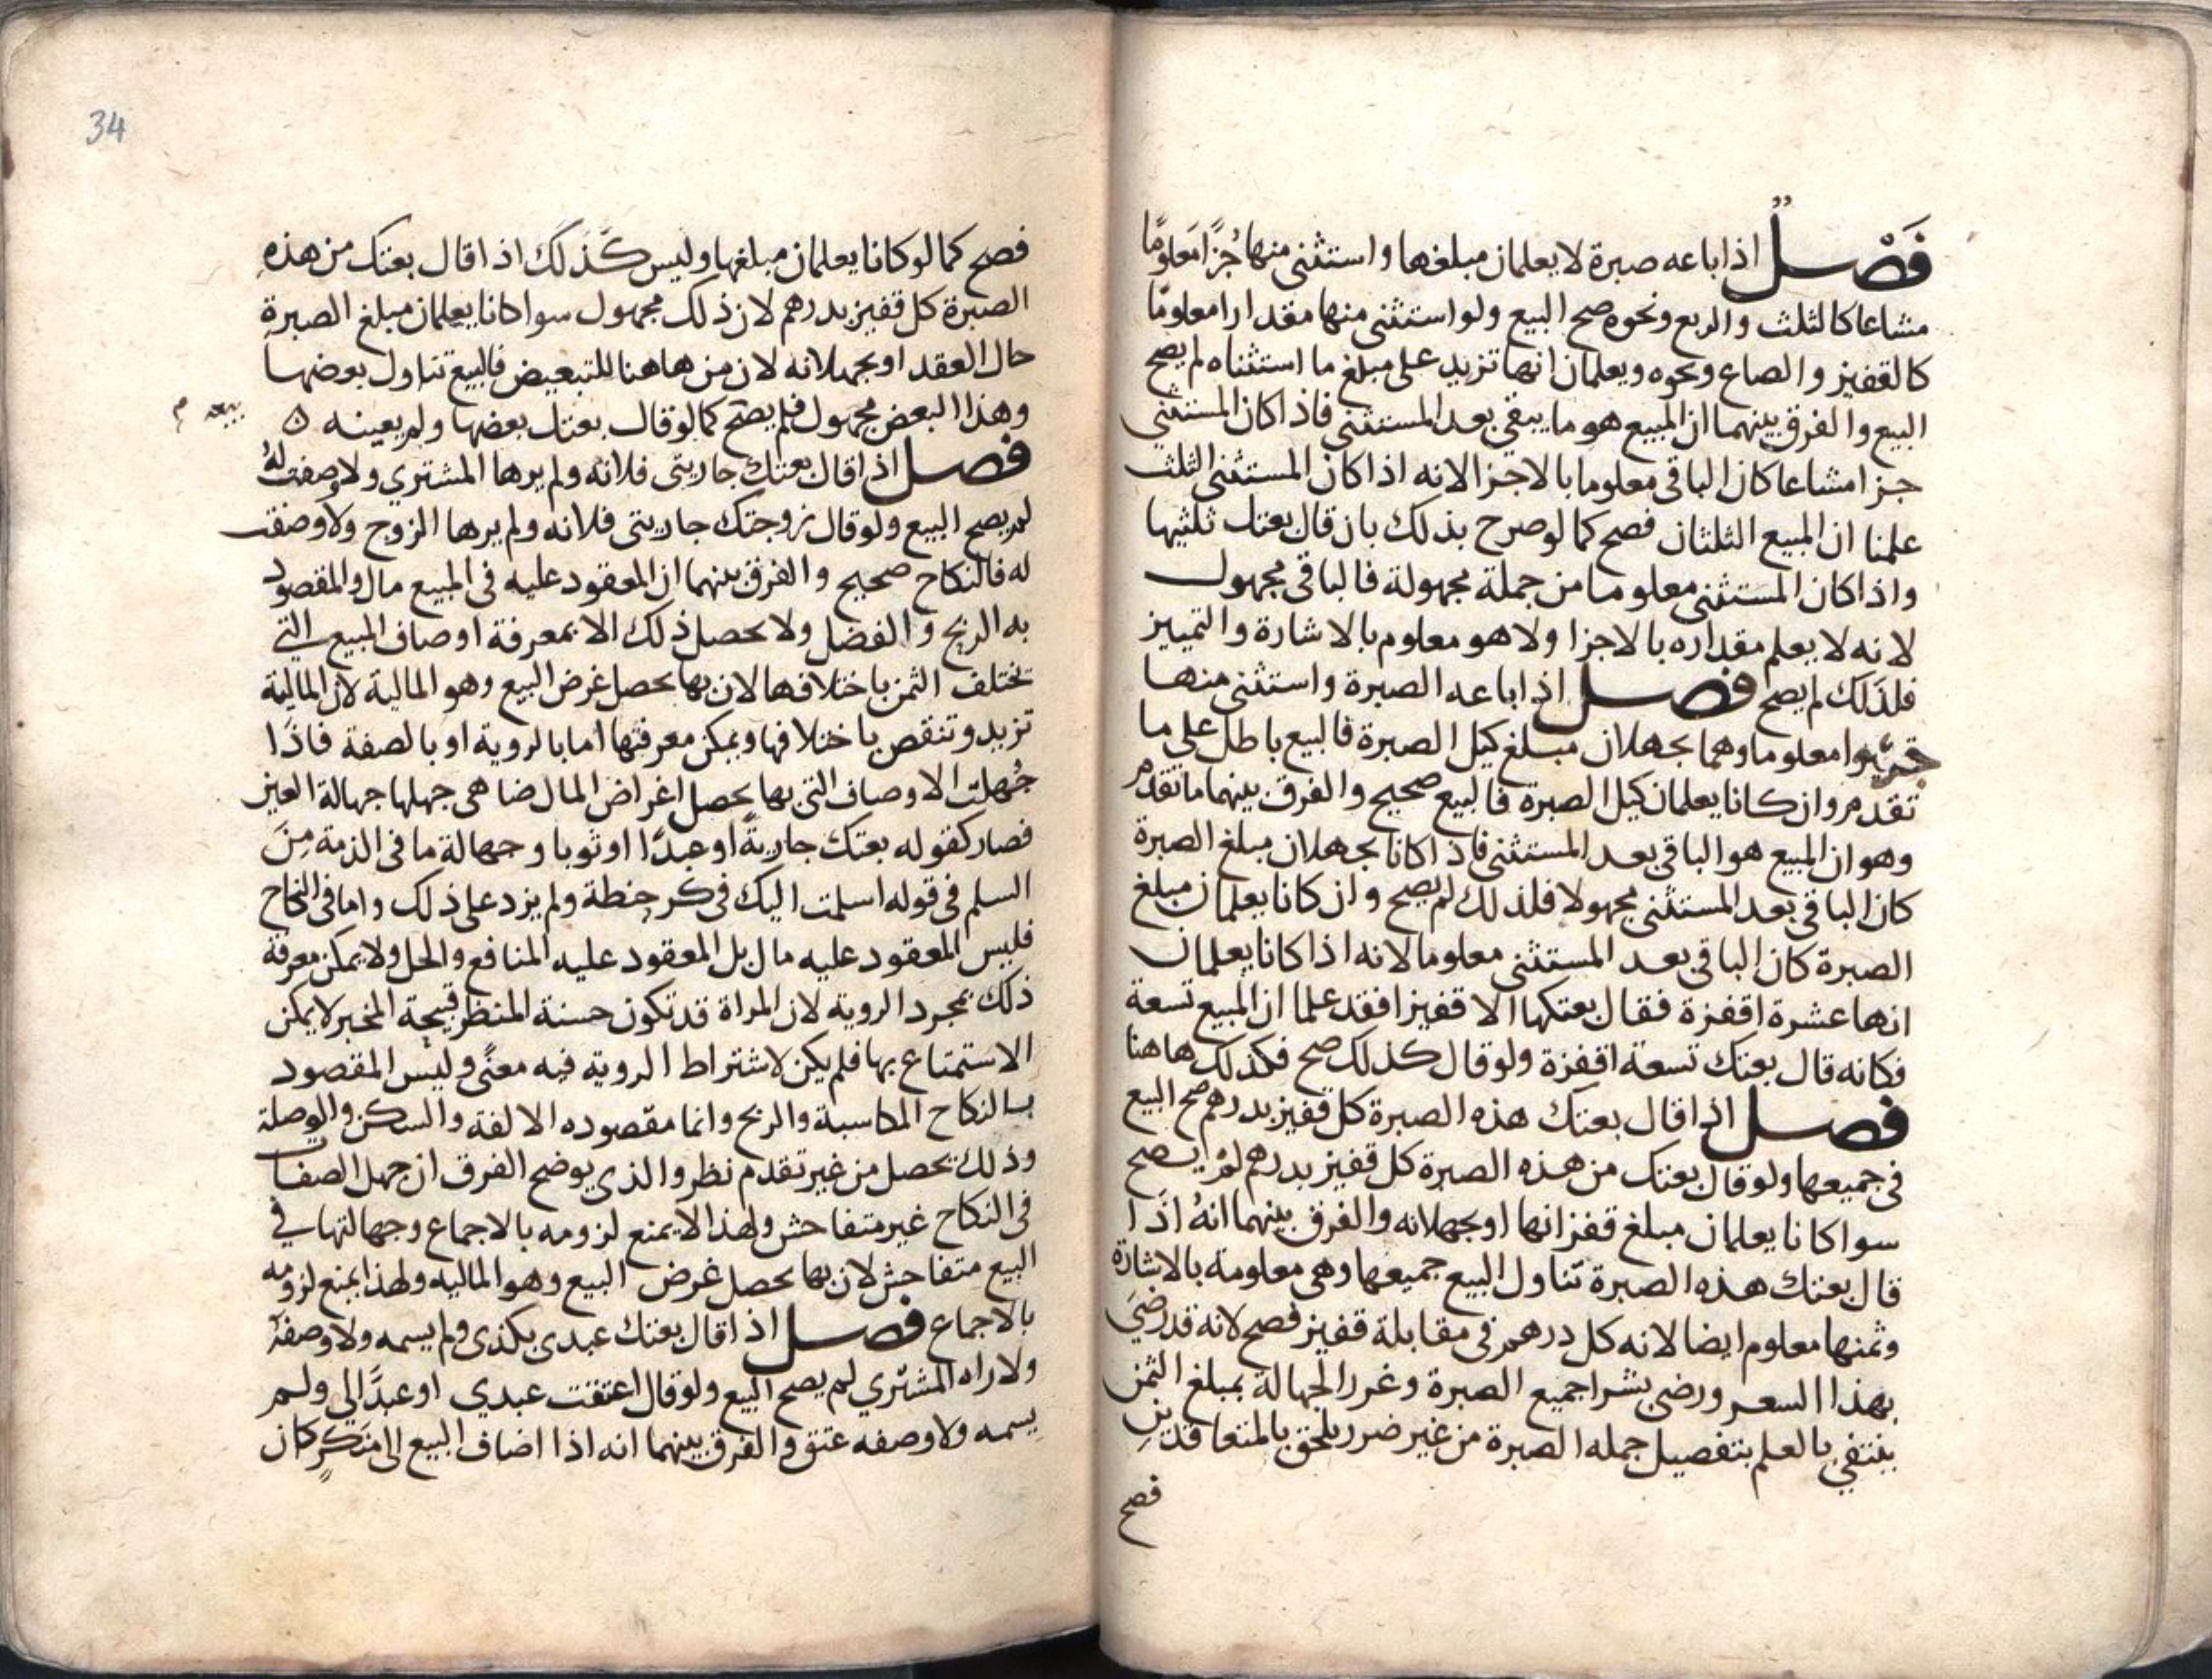 فَصْــل اذا باعه صبرة لا يعلمان مبلغها واستثنى منها جُزًا مَعلومًا
مشاعا كالثلث والربع ونحوه صح البيع ولو استثنى منها مقدارا معلومًا
كالقفيز والصاع ونحوه ويعلمان انها تزيد على مبلغ ما استثناه لم يصح
البيع والفرق بينهما ان المبيع هو ما يبقى بعد المستثنى فاذا كان المستثنى
جزا مشاعا كان الباقي معلوما بالاجزا لانه اذا كان المستثنى الثلث
علمنا ان المبيع الثلثان فصح كما لو صرح بذلك بان قال بعتك ثلثيها
واذا كان المستثنى معلوما من جملة مجهولة فالباقي مجهول
لانه لا يعلم مقداره بالاجزا ولا هو معلوم بالاشارة والتمييز
فلذلك لم يصح فصــل اذا باعه الصبرة واستثنى منها
معلوما وهما يجهلان مبلغ كيل الصبرة فالبيع باطل على ما
تقدم وان كانا يعلمان كيل الصبرة فالبيع صحيح والفرق بينهما ما تقدم
وهو ان المبيع هو الباقي بعد المستثنى فاذا كانا يجهلان مبلغ الصبرة
كان الباقي بعد المستثنى مجهولا فلذلك لم يصح وان كانا يعلمان مبلغ
الصبرة كان الباقي بعد المستثنى معلوما لانه اذا كانا يعلمان
انها عشرة اقفزة فقال بعتكها الا قفيزا فقد علما ان المبيع تسعة
فكانه قال بعتك تسعة اقفزة ولو قال كذلك صح فكذلك هاهنا
فصــل اذا قال بعتك هذه الصبرة كل قفيز بدرهم صح البيع
في جميعها ولو قال بعتك من هذه الصبرة كل قفيز بدرهم لم يصح
سوا كانا يعلمان مبلغ قفزانها او يجهلانه والفرق بينهما انهُ اذا
قال بعتك هذه الصبرة تناول البيع جميعها وهي معلومة بالاشارة
وثمنها معلوم ايضا لانه كل درهم في مقابلة قفيز فصح لانه قد رضيَ
بهذا السعر ورضي بشرا جميع الصبرة وغرر الجهالة بمبلغ الثمن
ينتفي بالعلم بتفصيل جمله الصبرة من غير ضرر يلحق بالمتعاقدين
فصح
34
فصح كما لو كانا يعلمان مبلغها وليس كَذَلَك اذا قال بعتك من هذهِ
الصبرة كل قفيز بدرهم لان ذلك مجهول سوا كانا يعلمان مبلغ الصبرة
حال العقد او يجهلانه لان من هاهنا للتبعيض فالبيع تناول بعضها
وهذا البعض مجهول فلم يصح كما لو قال بعتك بعضها ولم يعينه
فصــل اذا قال بعتك جاريتي فلانه ولم يرها المشتري ولا وصفت لهُ
لم يصح البيع ولو قال زوجتك جاريتي فلانه ولم يرها الزوج ولا وصفت
له فالنكاح صحيح والفرق بينهما ان المعقود عليه في المبيع مال والمقصود
به الربح والفضل ولا يحصل ذلك الا بمعرفة اوصاف المبيع التي
تختلف الثمن باختلافها لان بها يحصل غرض البيع وهو المالية لان المالية
تزيد وتنقص باختلافها ويمكن معرفتها اما بالروية او بالصفة فاذَا
جُهلت الاوصاف التي بها يحصل اغراض المال ضاهى جهلها جهالة العين
فصار كقوله بعتك جاريةً او عبدًا او ثوبا وجهالة ما في الذمة مِنَ
السلم في قوله اسلمت اليك في كر حنطة ولم يزد على ذلك واما في النكاح
فليس المعقود عليه مال بل المعقود عليه المنافع والحل ولا يمكن معرفة
ذلك بمجرد الروية لان المراة قد تكون حسنة المنظر قبيحة المخبر لا يمكن
الاستمتاع بها فلم يكن لاشتراط الروية فيه معنًى وليس المقصود
بالنكاح المكاسبة والربح وانما مقصوده الالفة والسكن والوصلة
وذلك يحصل من غير تقدم نظر والذي يوضح الفرق ان جهل الصفات
في النكاح غير متفاحش ولهذا لا يمنع لزومه بالاجماع وجهالتها في
البيع متفاحش لان بها يحصل غرض البيع وهو الماليه ولهذا يمنع لزومه
بالاجماع فصــل اذا قال بعتك عبدي بكذى ولم يسمه ولا وصفهُ
ولا راه المشتري لم يصح البيع ولو قال اعتقت عبدي او عبدًا لي ولم
يسمه ولا وصفه عتق والفرق بينهما انه اذا اضاف البيع الى منَكرٍ كان